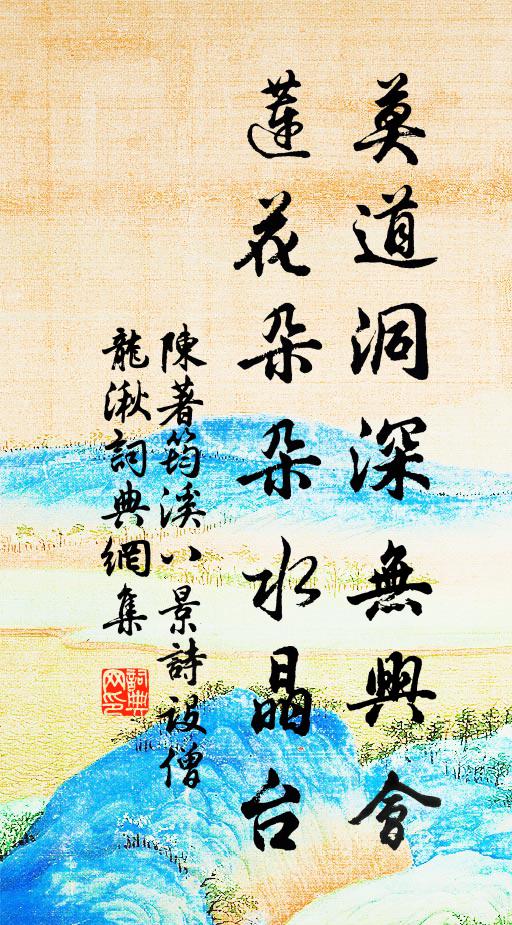 莫道洞深無興會
蓮花朵朵水晶台
陳著筠溪八景詩設僧
龍湫詞典網集
詞典網印